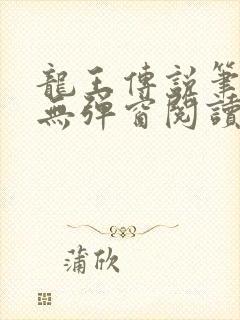 龍王傳說筆
無彈窗閱讀
蒲欣